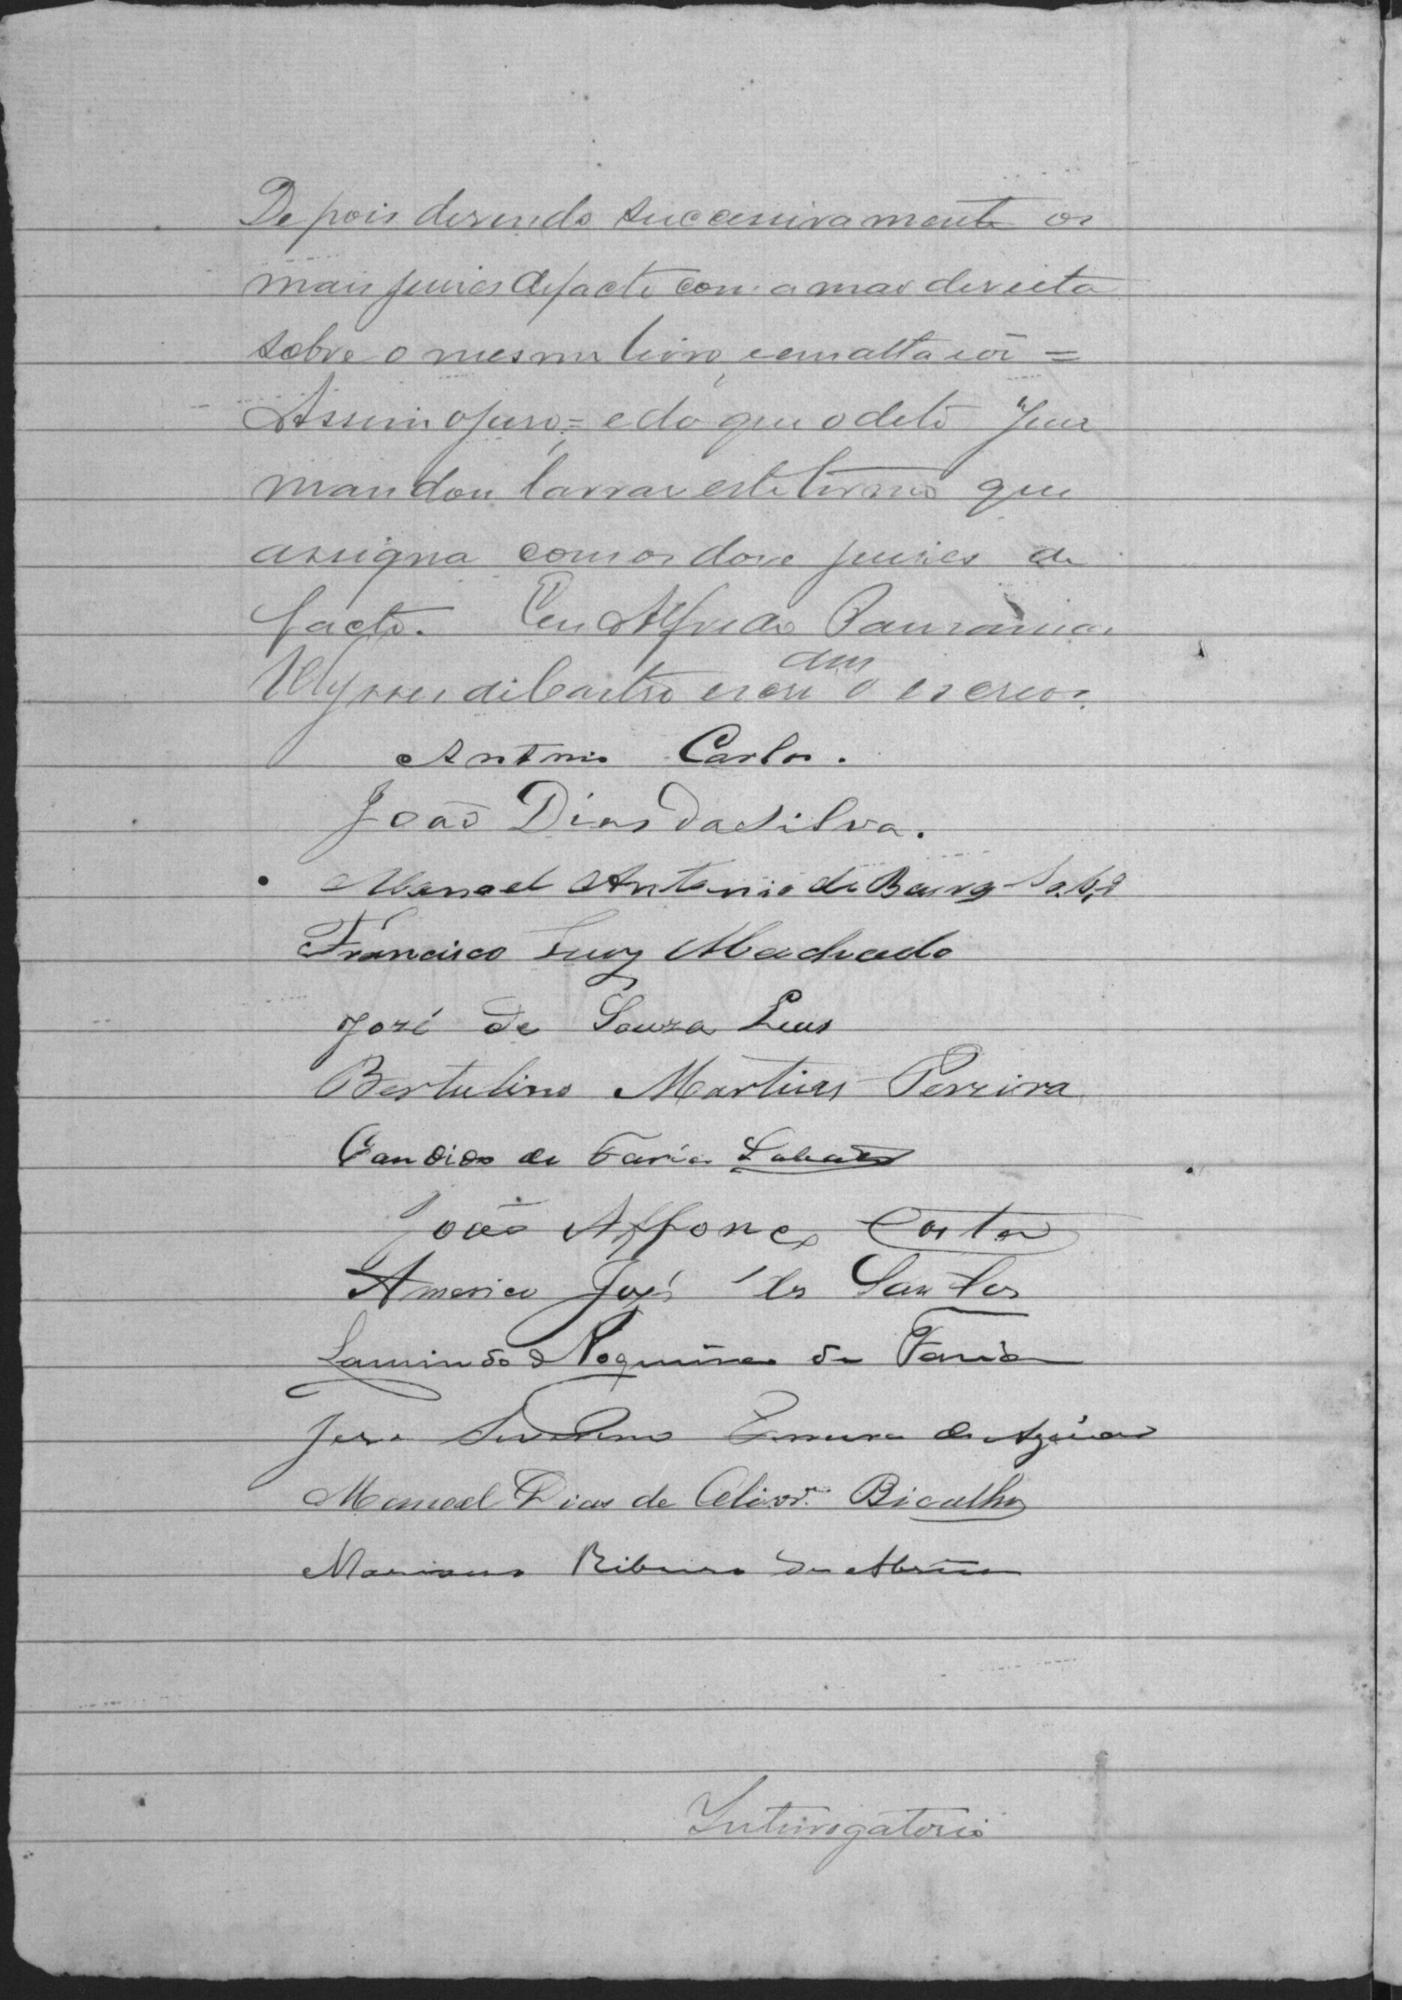 Depois dizendo successivamente os
mais juizes de facto com a mão direita
sobre o mesmo livro, em alta voz =
Assim o juro; = e do que o dito Juiz
mandou lavrar este termo que
assigna com os doze juizes de
facto. Eu Alfredo Pausanias
dam
Ulysses de Castro escri o escrevi.
Antonio Carlos.
João Dias da Silva.
Manoel Antonio de Barros
Francisco Luiz Machado
José de Souza Leus
Bertulino Martins Pereira
Candido de Faria Lobato
João Affonço Costa
Americo José dos Santos
Laurindo Nogueira de Faria
José Severino Ferreira de Aguiar
Manoel Dias de Olivrª Bicalho
Mariano Ribeiro de Abreu
Interrogatorio